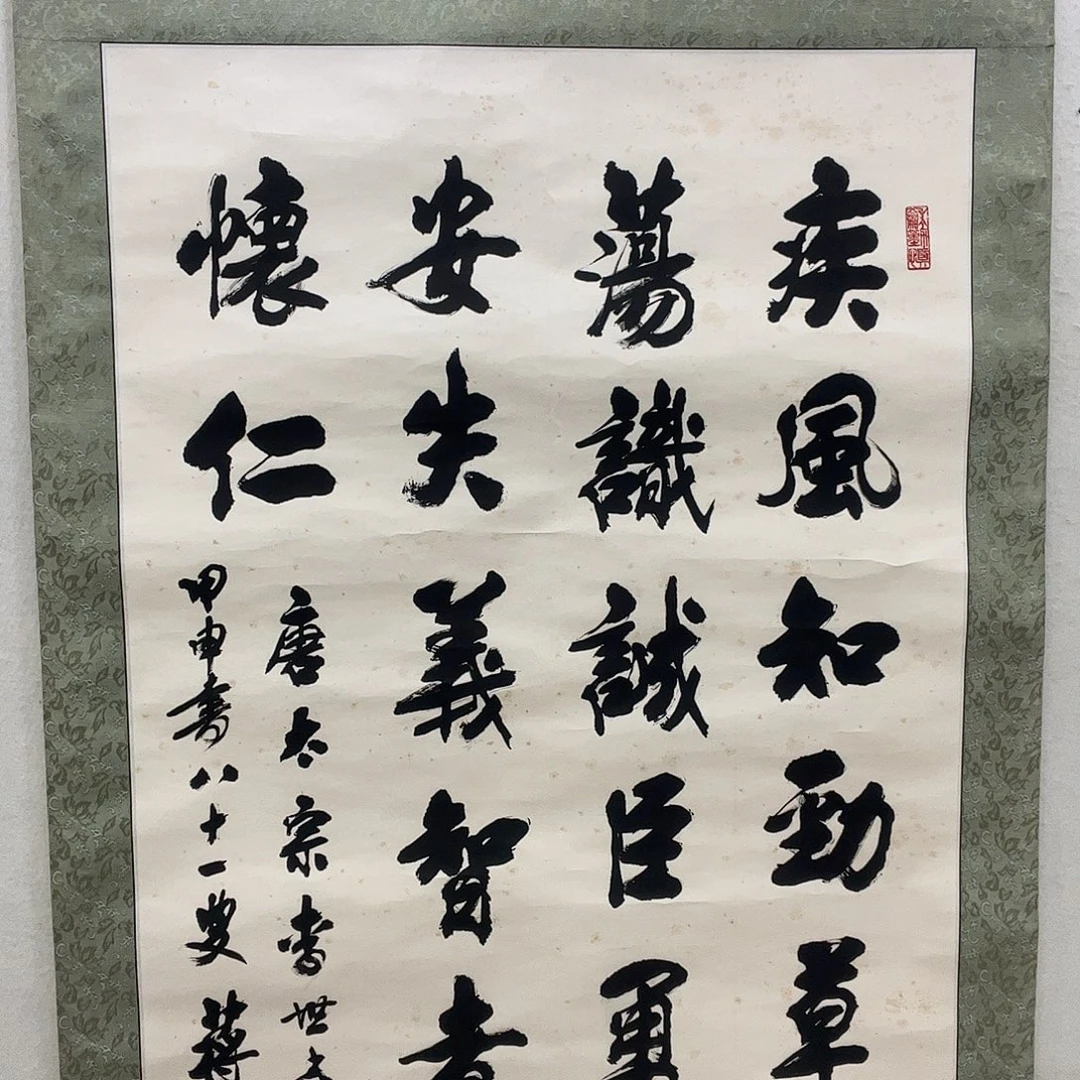 疾風知勁草
蕩識誠臣勇
安失義智者
懷仁
唐太宗李世
甲申書八十一叟